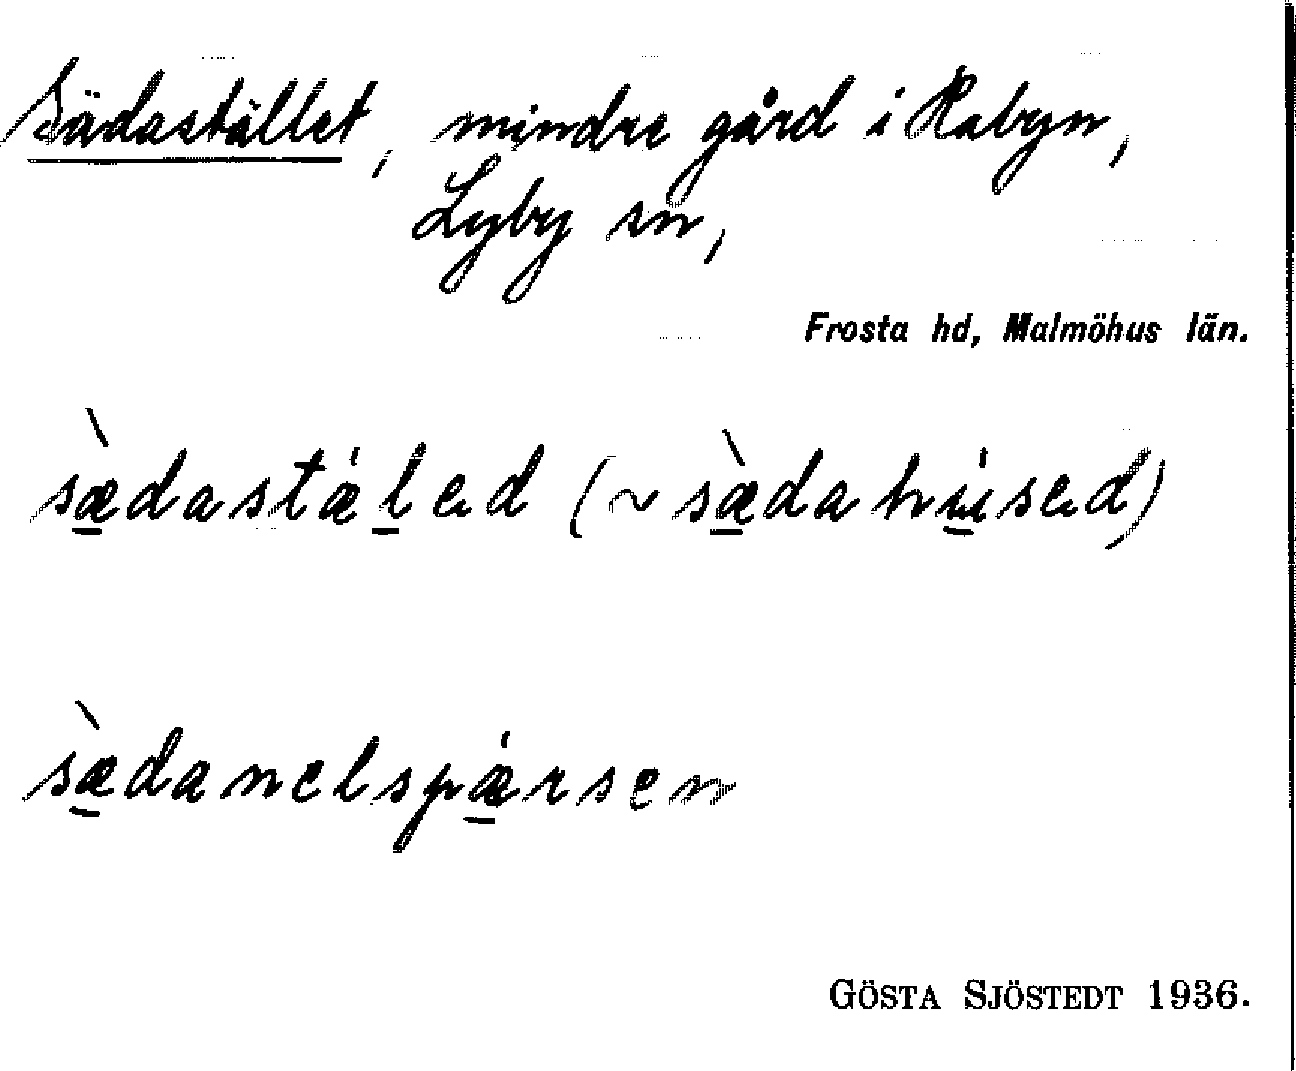 Sädastället, mindre gård i Rabyn,
Lyby sn,
Frosta hd, Malmöhus län.
sæ̱̀dastǽḻed (~ sæ̱̀dahú̱sed)
sæ̱̀danelspǽ̱rsen
GÖSTA SJÖSTEDT 1936.